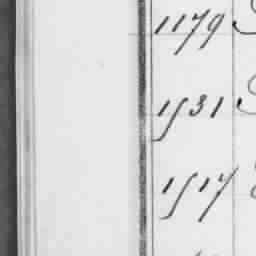 1179
1531
1517